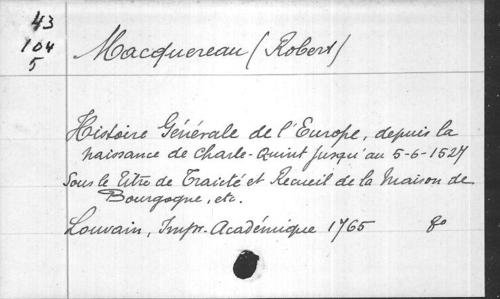 43
104
5
Macquereau (Robert)
Histoire Générale de l'Europe, depuis la
naissance de Charle-Quint jusqu'au 5-6-1527
Sous le titre de Traicté et Recueil de la Maison de
Bourgogne, etc.
Louvain, Impr. Académique 1765 8o